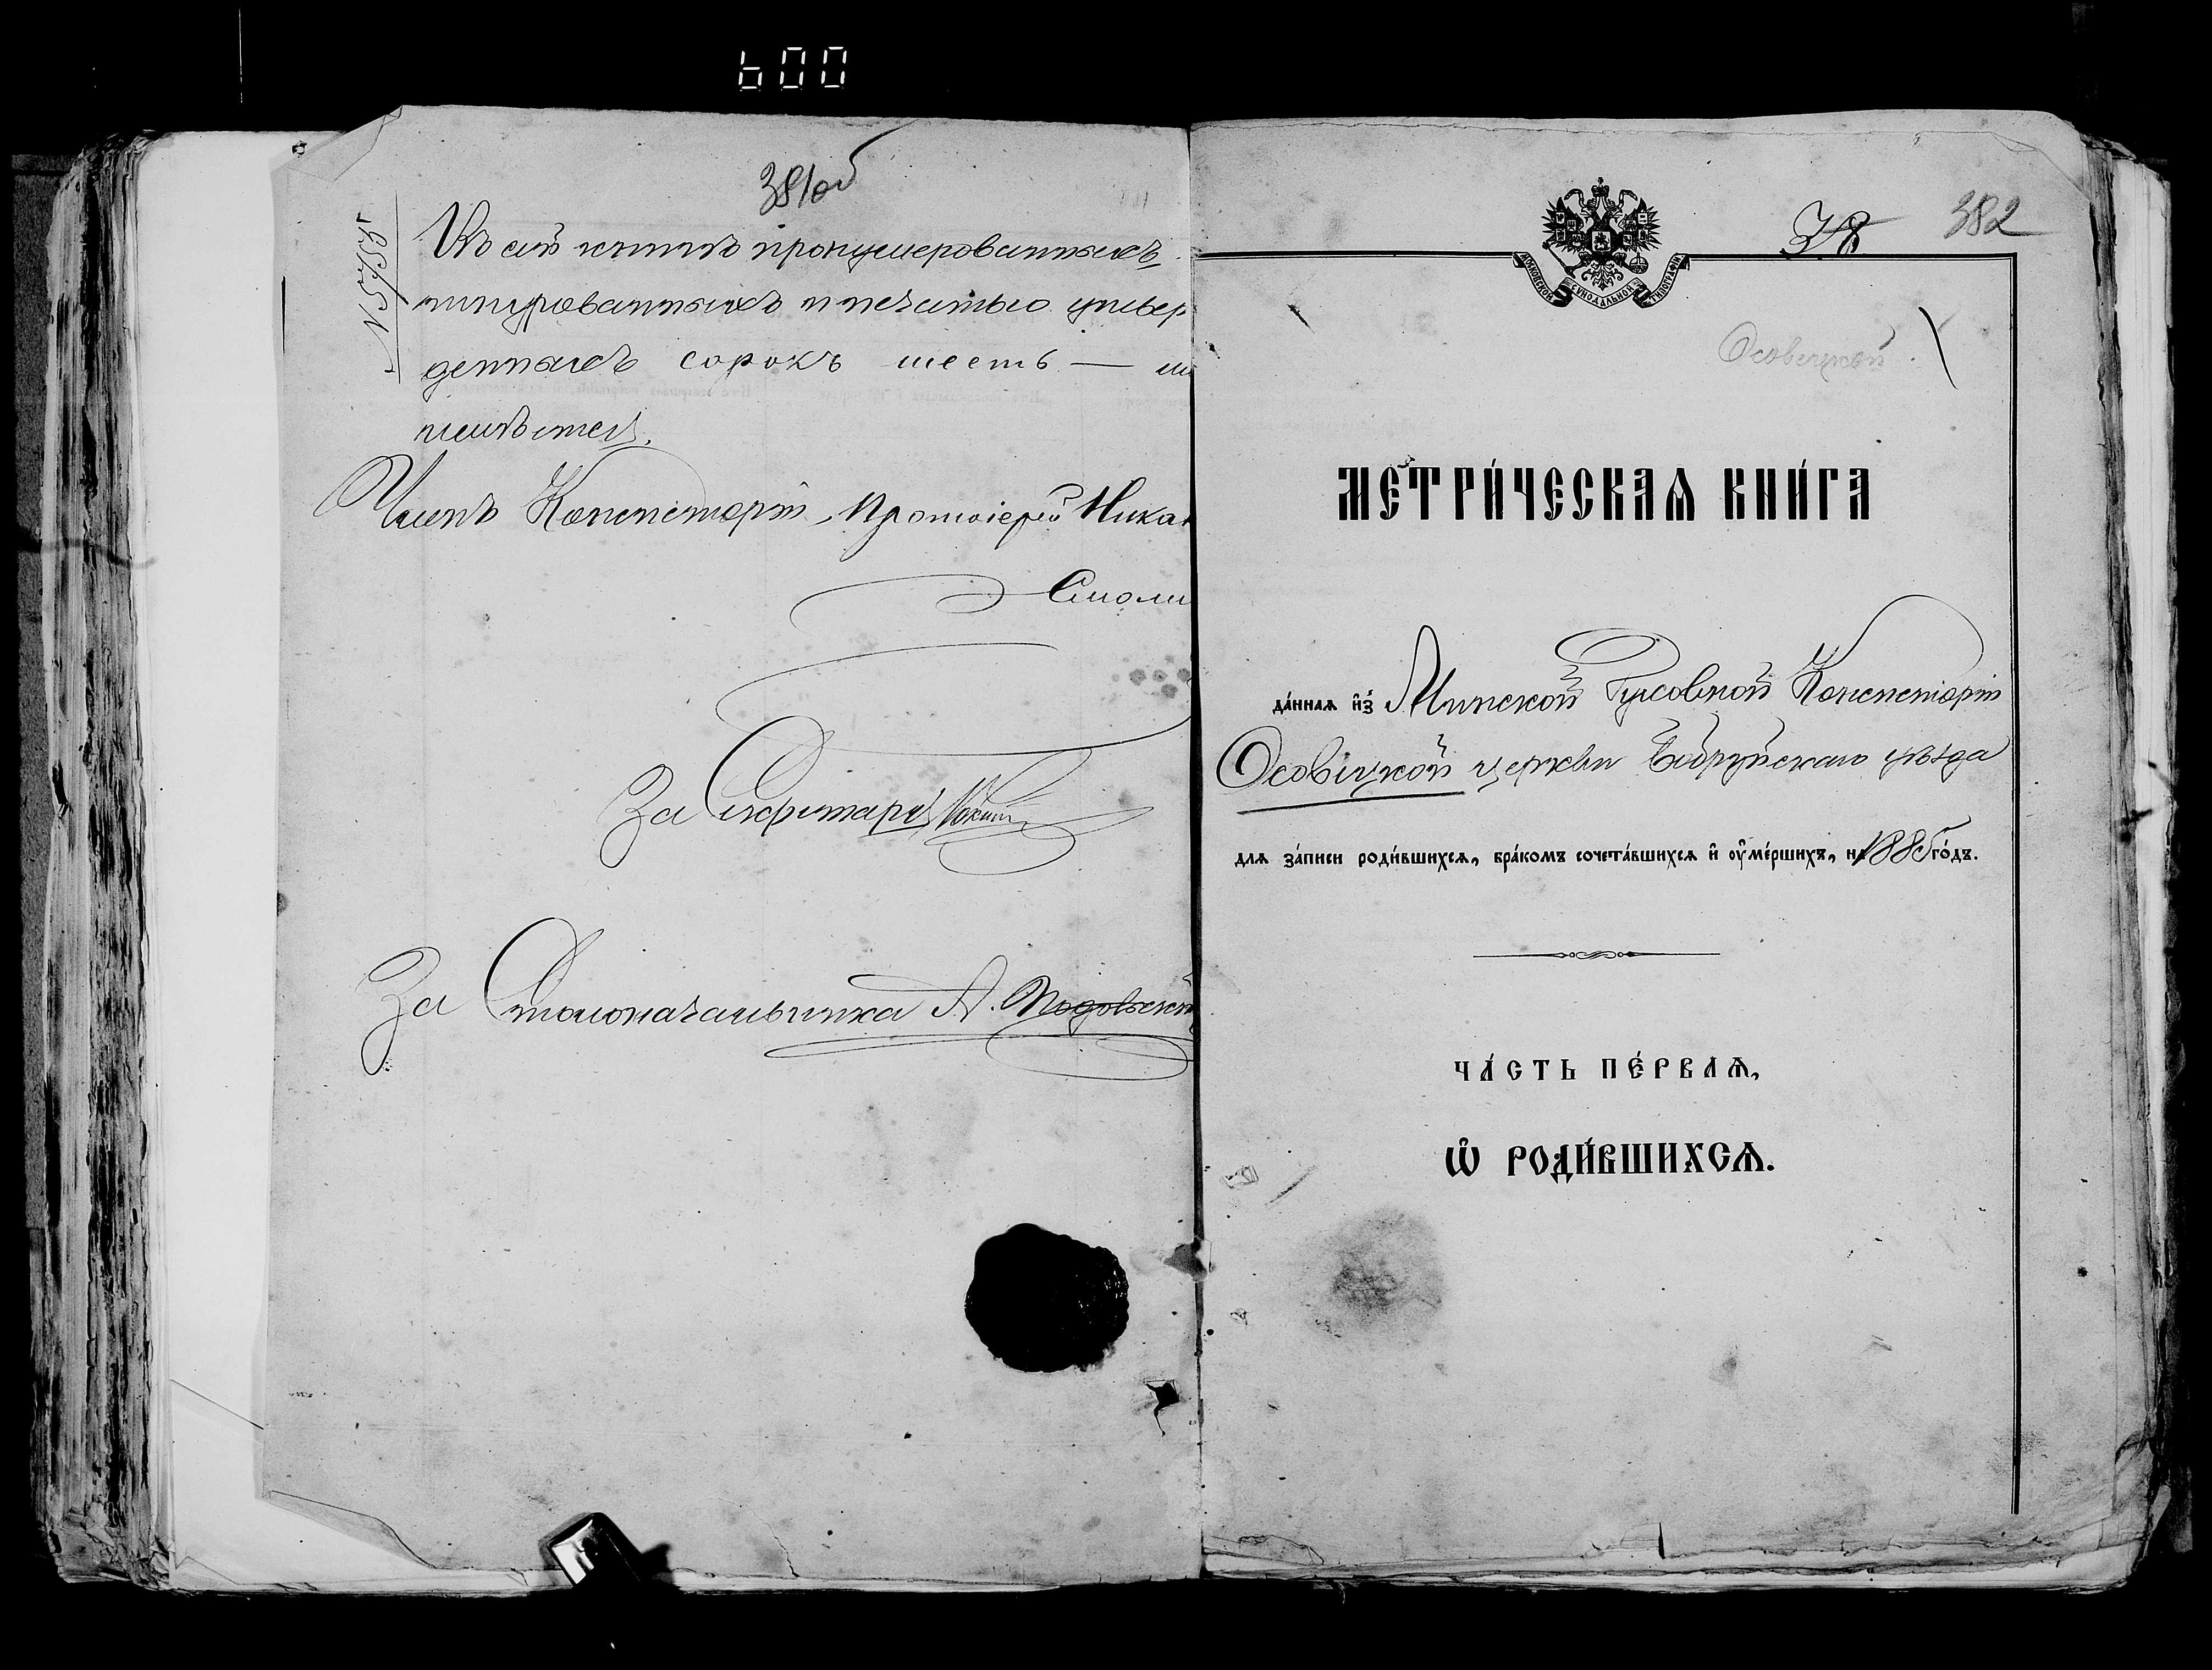 600
381об
№ 5758
Въ сей книгѣ пронумерованныхъ,
шнурованныхъ и печатью утвер
денныхъ сорокъ шесть — ли
имѣется.
Членъ Консисторіи, Протоіерей Ника
Смоли
За Секретаря
За Столоначальника А. Подольскі
38
382
МОСКОВСКОЙ СѴНОДАЛЬНОЙ ТИПОГРАФІИ
Осовецкой
МЕТРИ́ЧЕСКАѦ КНИ́ГА
да́ннаѧ и҆з̾ Минской Духовной Консисторіи
Осовецкой церкви Бобруйскаго уѣзда
длѧ за́писи роди́вшихсѧ, бра́комъ сочета́вшихсѧ и҆ ᲂу҆ме́ршихъ, на 1885 го́дъ.
ЧА́СТЬ ПЕ́РВАѦ,
Ѽ РОДИ́ВШИХСѦ.